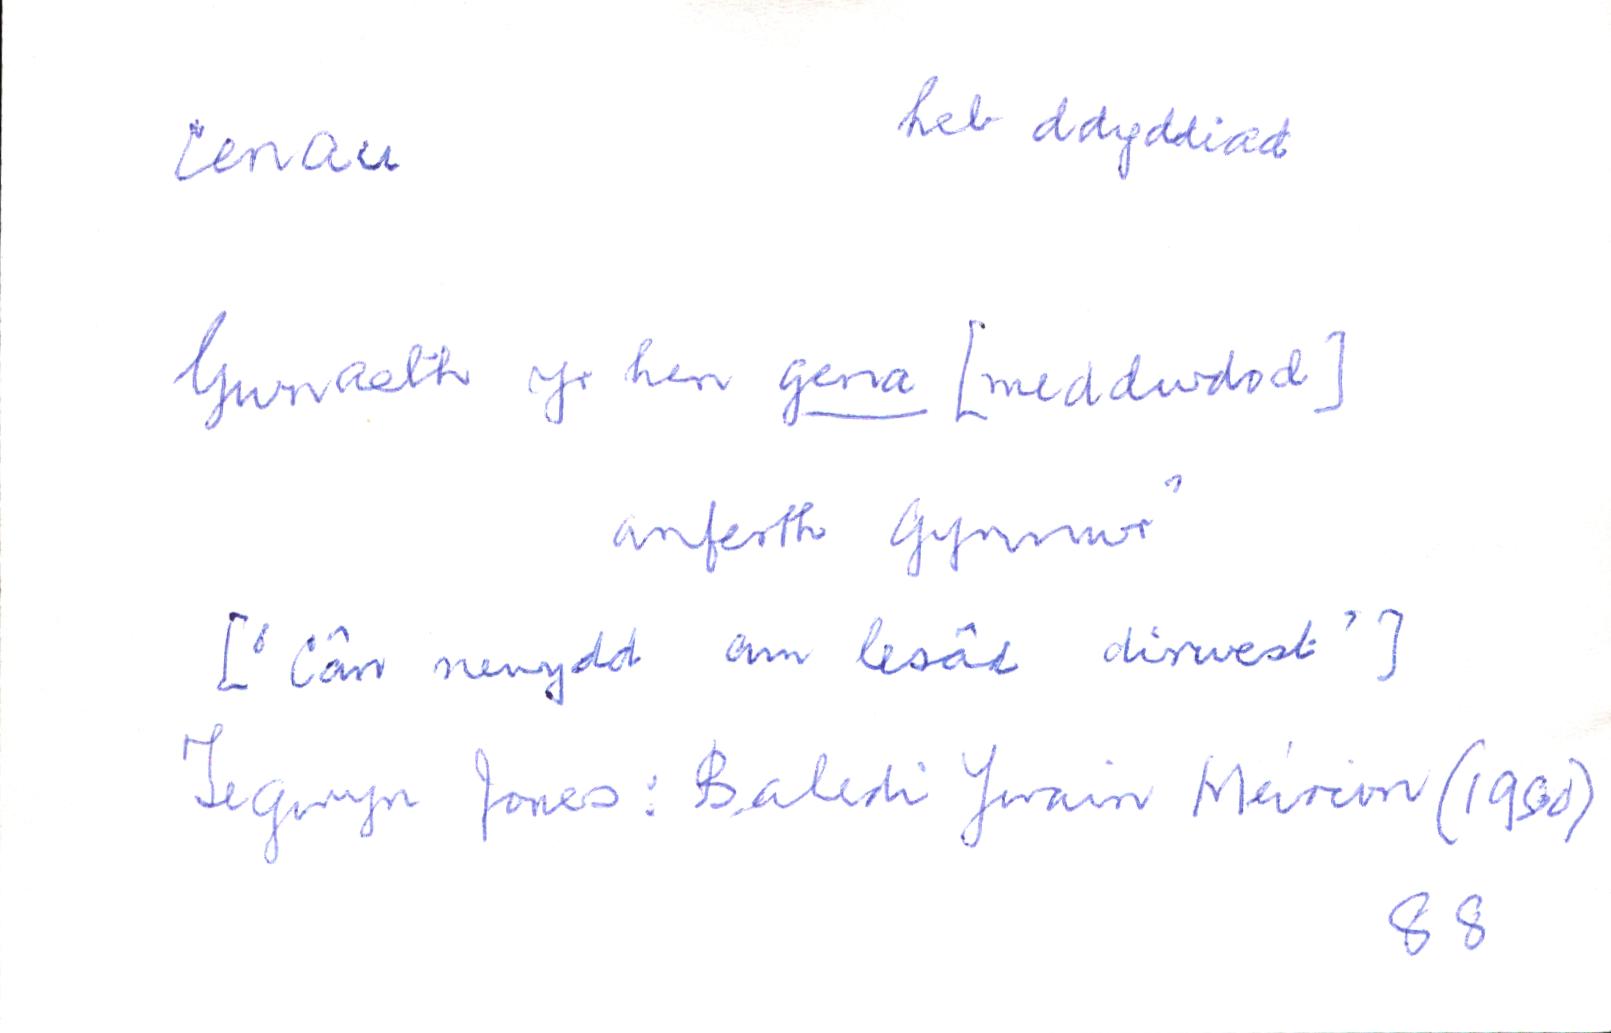 cenau heb ddyddiad
Gwnaeth yr hen gena [meddwdod]
anferth Gynnwr'
['Cân newydd am lesâd dirwest']
Tegwyn Jones: Baledi Ywain Meirion (1980)
88